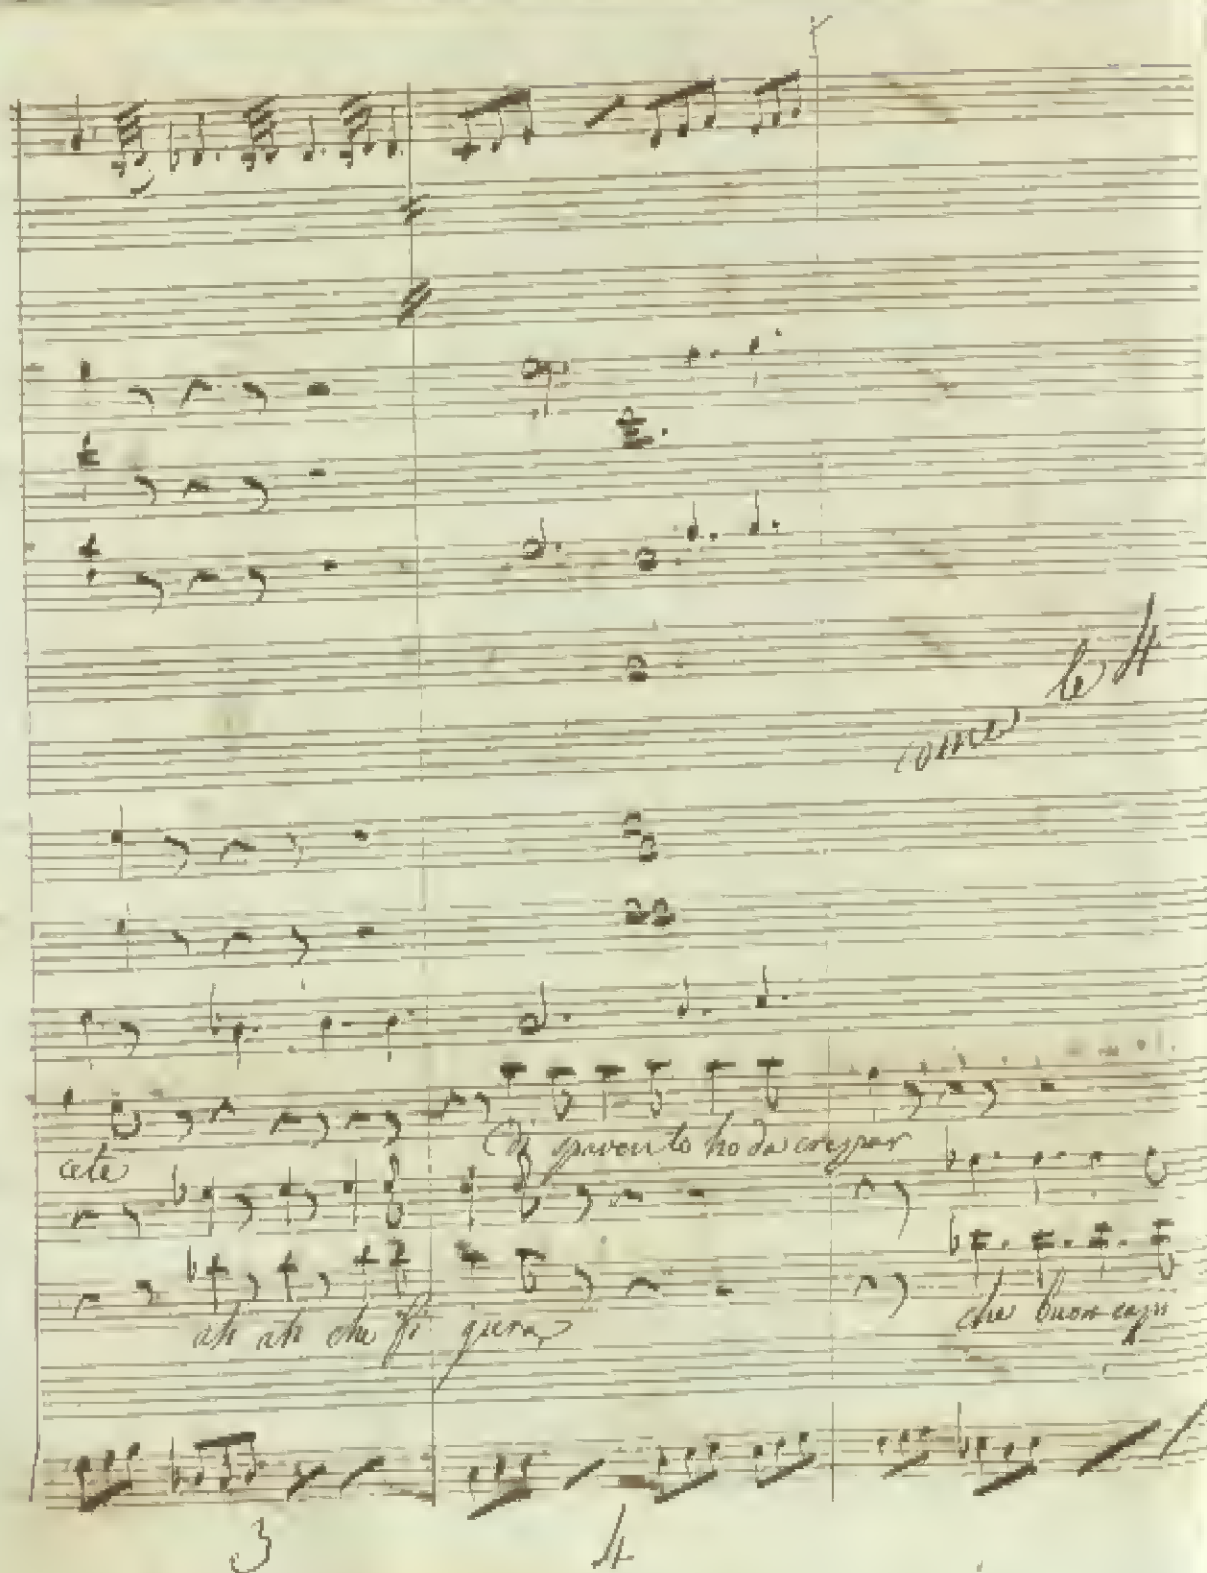 come le 4
cete
Di spavento ho da creppar
ah ah che fi gura
che buon capi
3 4